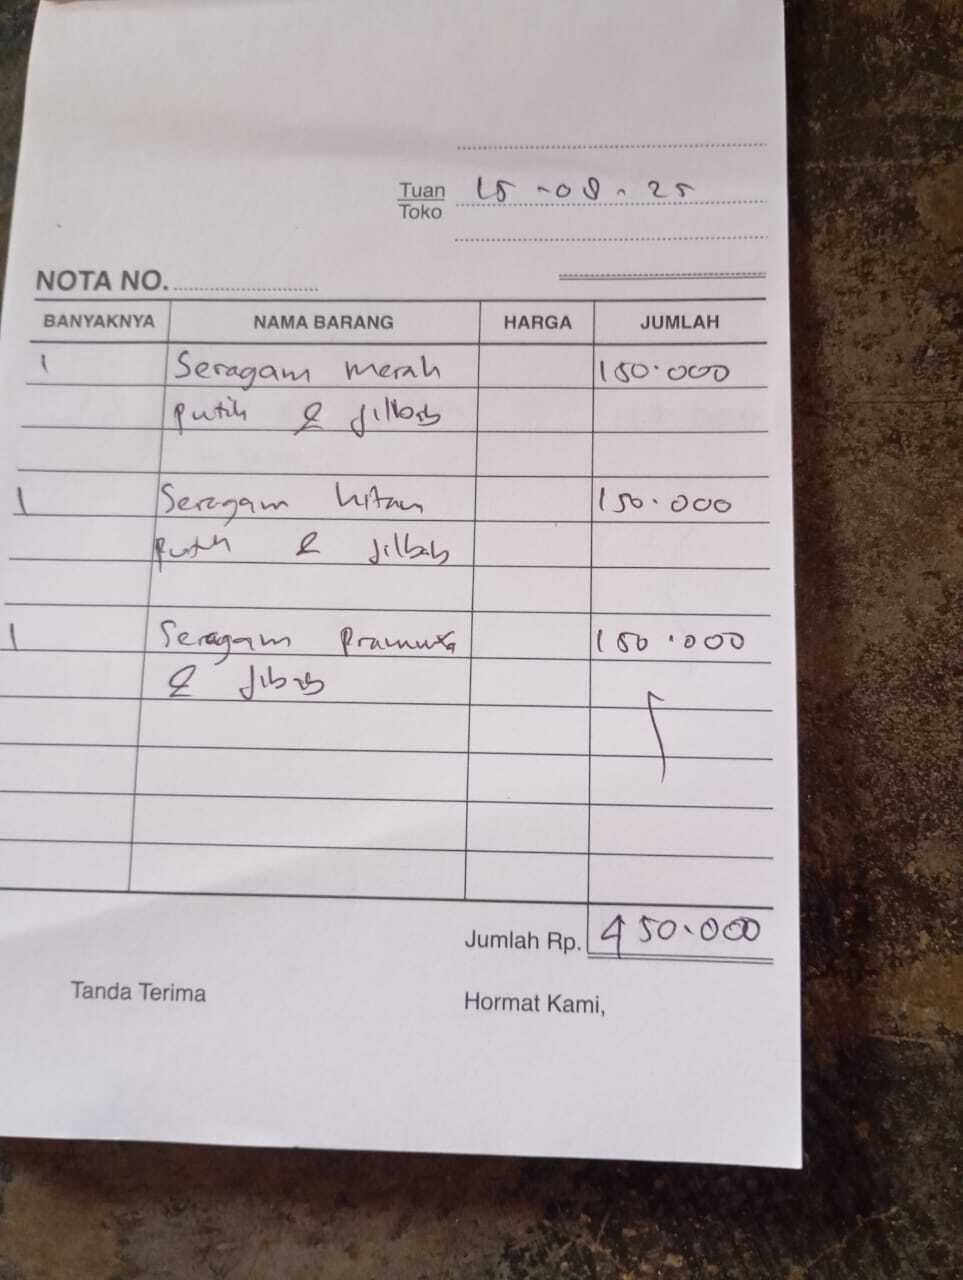 Tuan
Toko
15-08-25
NOTA NO.
BANYAKNYA NAMA BARANG HARGA JUMLAH
1 Seragam merah 150.000
putih & jilbab
1 Seragam hitam 150.000
putih & jilbab
1 Seragam Pramuka 150.000
& jibab
Jumlah Rp. 450.000
Tanda Terima Hormat Kami,